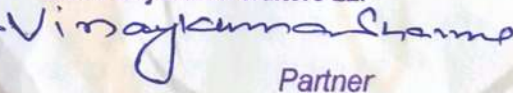 Vinaykumar Sharma
Partner